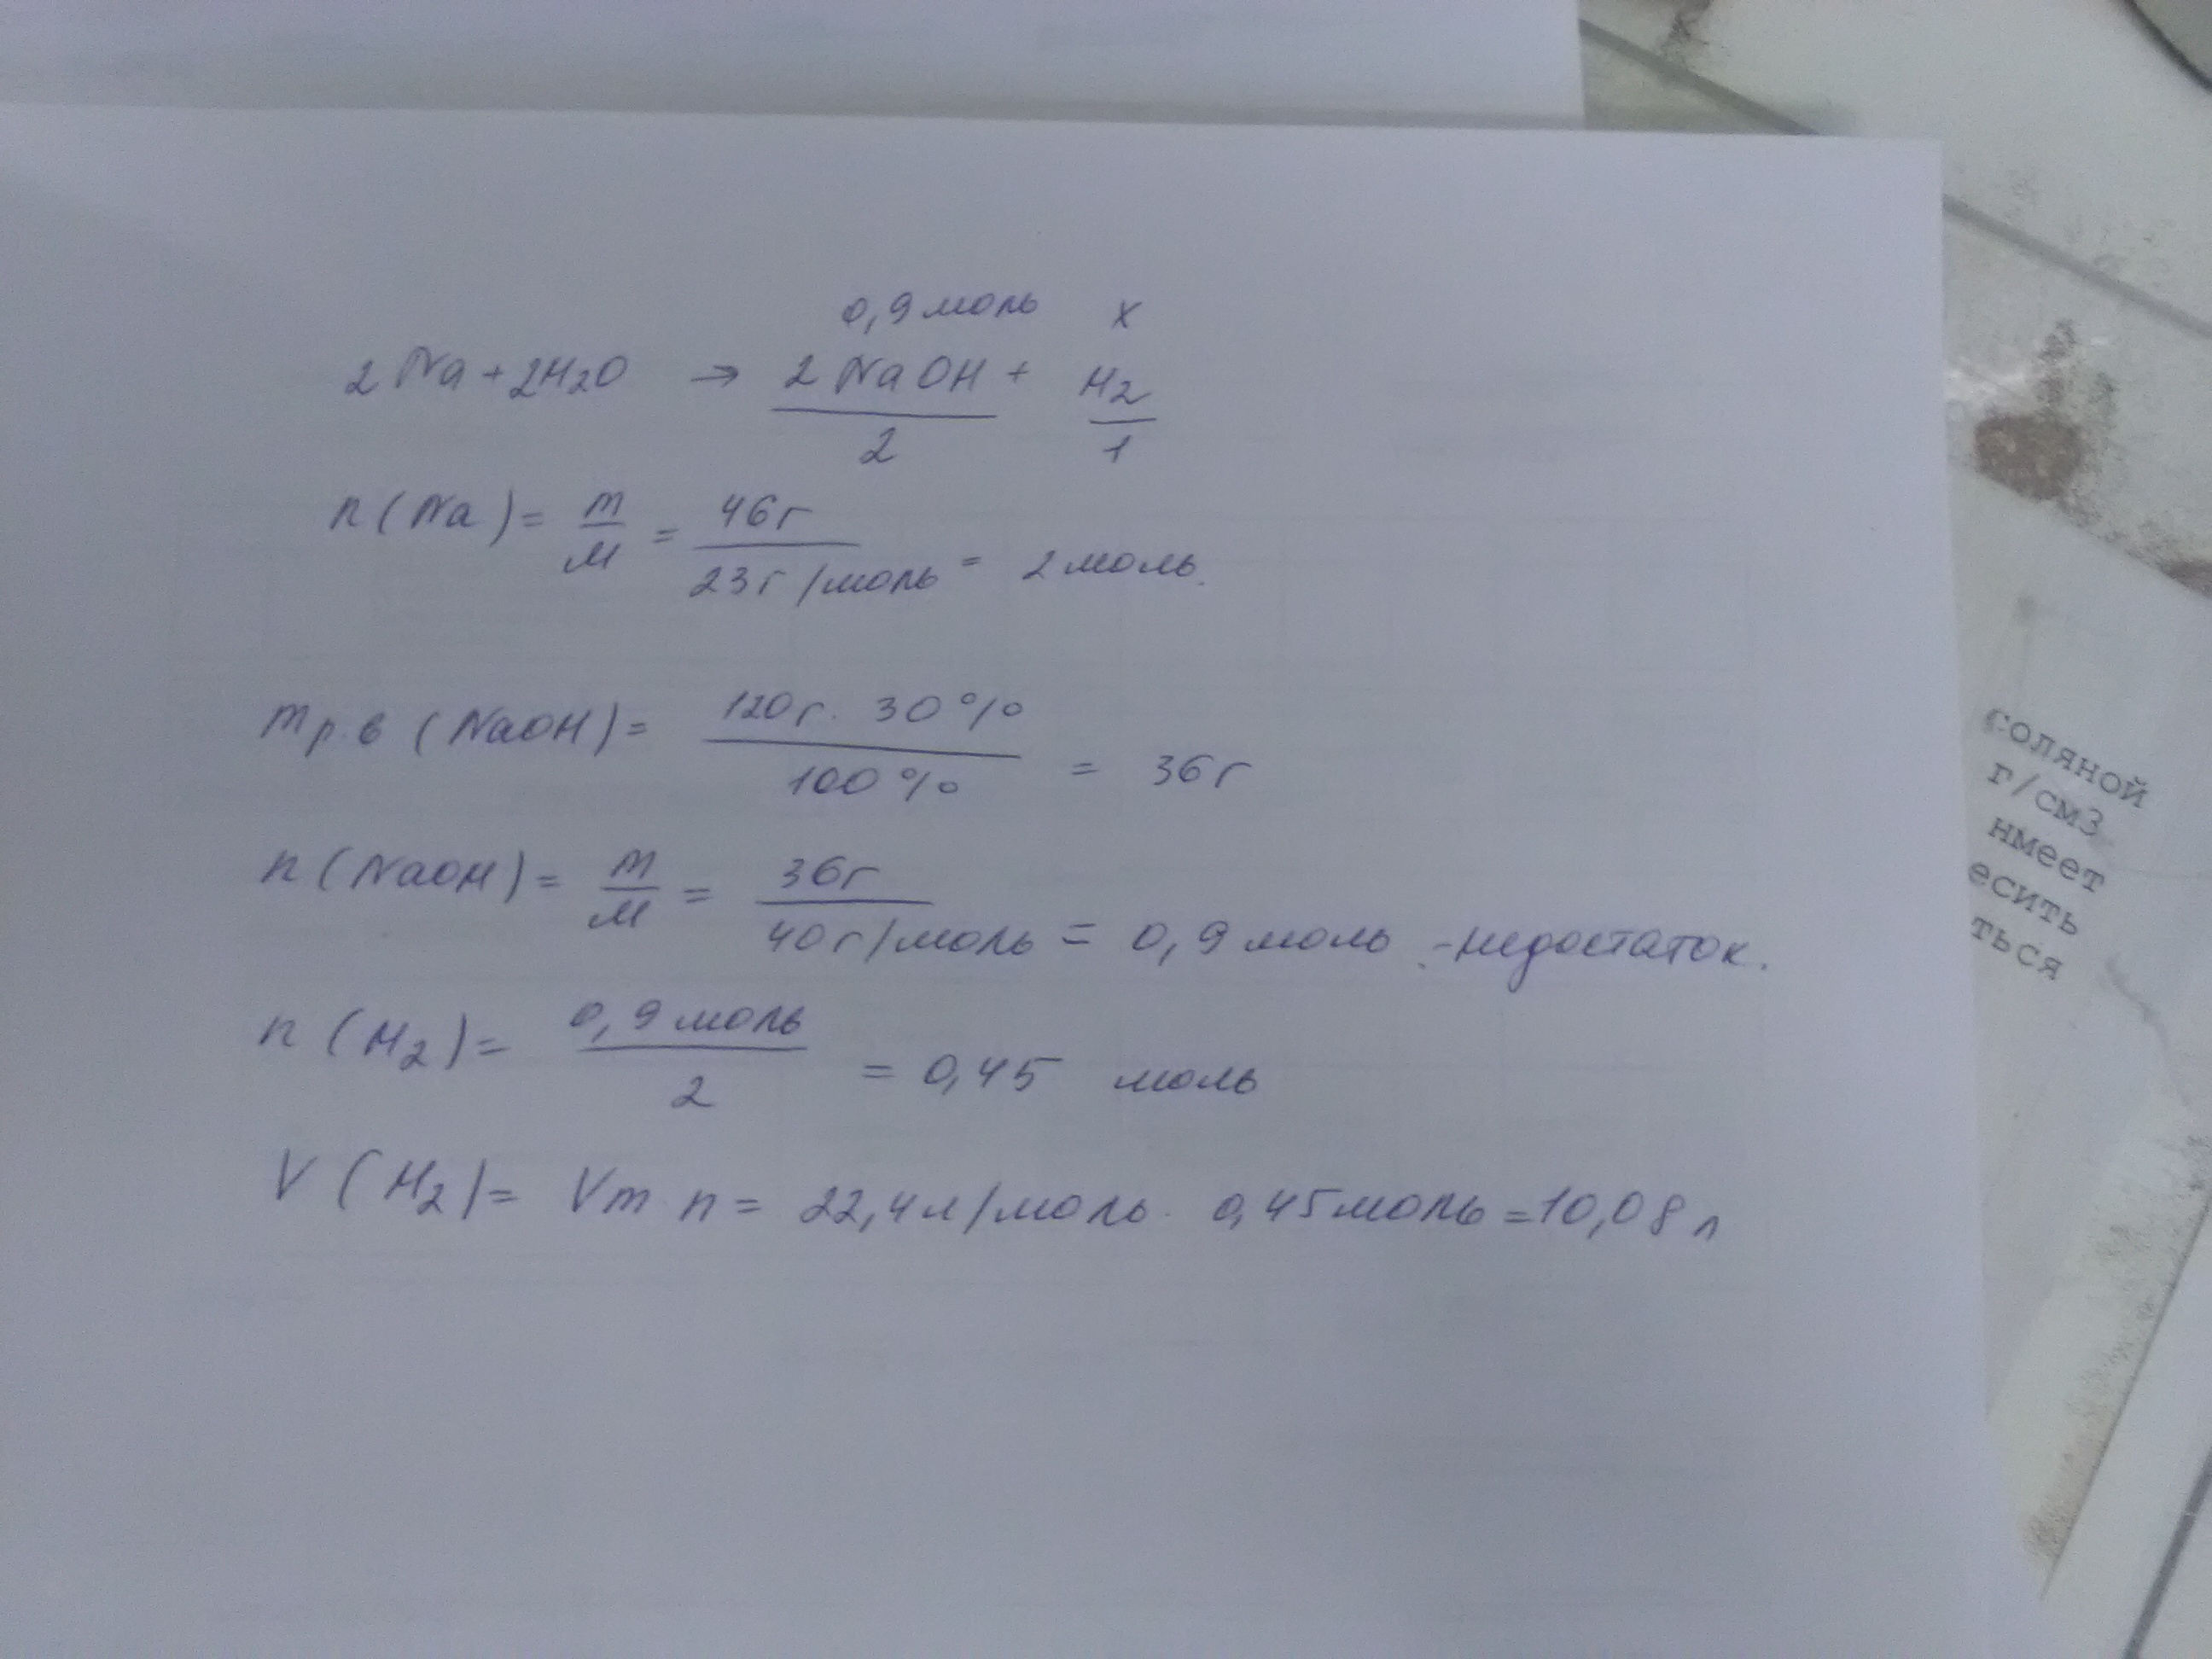 0,9 моль x
2Na + 2H2O → 2NaOH + H2
2 1
n(Na) = m/M = 46г / 23г/моль = 2 моль.
mр.в (NaOH) = 120г · 30% / 100% = 36г
n(NaOH) = m/M = 36г / 40г/моль = 0,9 моль - недостаток.
n(H2) = 0,9 моль / 2 = 0,45 моль
V(H2) = Vm · n = 22,4л/моль · 0,45моль = 10,08 л
соляной
г/см3
нмеет
есить
ться